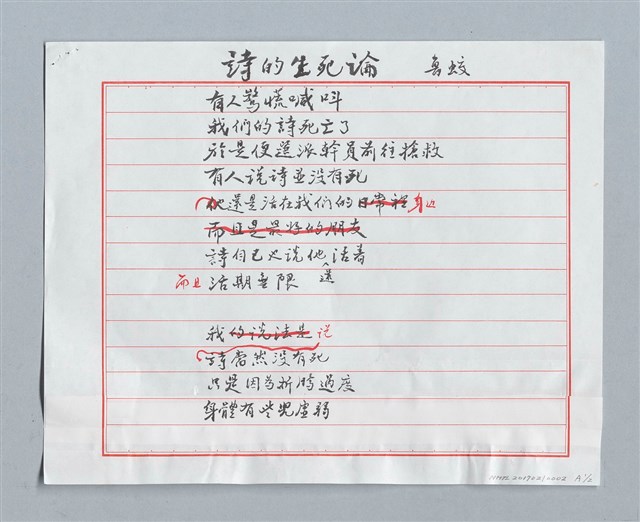 詩的生死論 魯蛟
有人驚慌喊叫
我们的詩死亡了
於是便選派幹員前往搶救
有人说诗並没有死
他還是活在我们的日常裡身边
而且是最好的朋友
詩自己也说他還活着
而且活期無限
我的说法是说
詩當然没有死
只是因為折騰過度
身體有些兒虛弱
NMTL 20170210002 A 1/2